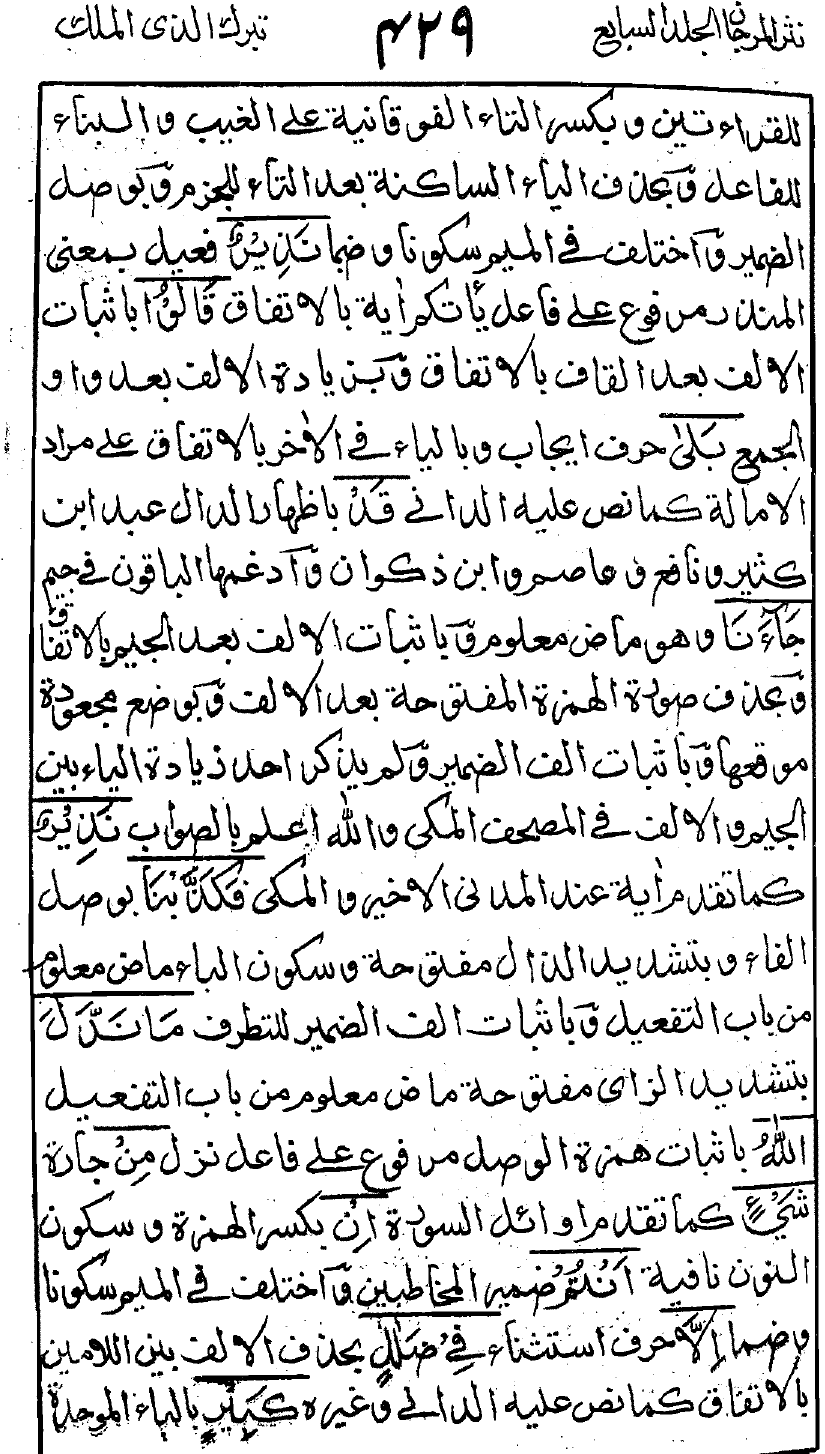 نثر المرجان الجلد السابع ٤٢٩ تبرك الذى الملك
للقراءتين و بكسر التاء الفوقانية على الغيب و البناء
للفاعل و بحذف الياء الساكنة بعد التاء للجزم و بوصل
الضمير و اختلف في الميم سكونا و ضما نَذِيْرٌ فعيل بمعنى
المنذر مرفوع على فاعل يأتكم اٰية بالاتفاق قَالُوْا باثبات
الالف بعد القاف بالاتفاق و بزيادة الالف بعد واو
الجمع بَلىٰ حرف ايجاب و بالياء في الاٰخر بالاتفاق على مراد
الامالة كما نص عليه الداني قَدْ باظهار الدال عبد ابن
كثير و نافع و عاصم و ابن ذكوان و ادغمها الباقون في جيم
جَآءَنَا و هو ماض معلوم و باثبات الالف بعد الجيم بالاتفاق
و بحذف صورة الهمزة المفتوحة بعد الالف و بوضع مجعودة
موقعها و باثبات الف الضمير و لم يذكر احد زيادة الياء بين
الجيم و الالف في المصحف المكى و الله اعلم بالصواب نَذِيْرٌ
كما تقدم اٰية عند المدنى الاخير و المكى فَكَذَّبْنَا بوصل
الفاء و بتشديد الذال مفتوحة و سكون الباء ماض معلوم
من باب التفعيل و باثبات الف الضمير للتطرف مَا نَزَّلَ
بتشديد الزاى مفتوحة ماض معلوم من باب التفعيل
اللهُ باثبات همزة الوصل مرفوع على فاعل نزل مِنْ جارة
شَيْءٍ كما تقدم اوائل السورة اِنْ بكسر الهمزة و سكون
النون نافية اَنْتُمْ ضمير المخاطبين و اختلف في الميم سكونا
و ضما اِلَّا حرف استثناء فِيْ ضَلٰلٍ بحذف الالف بين اللامين
بالاتفاق كما نص عليه الدانى و غيره كَبِيْرٍ بالباء الموحدة